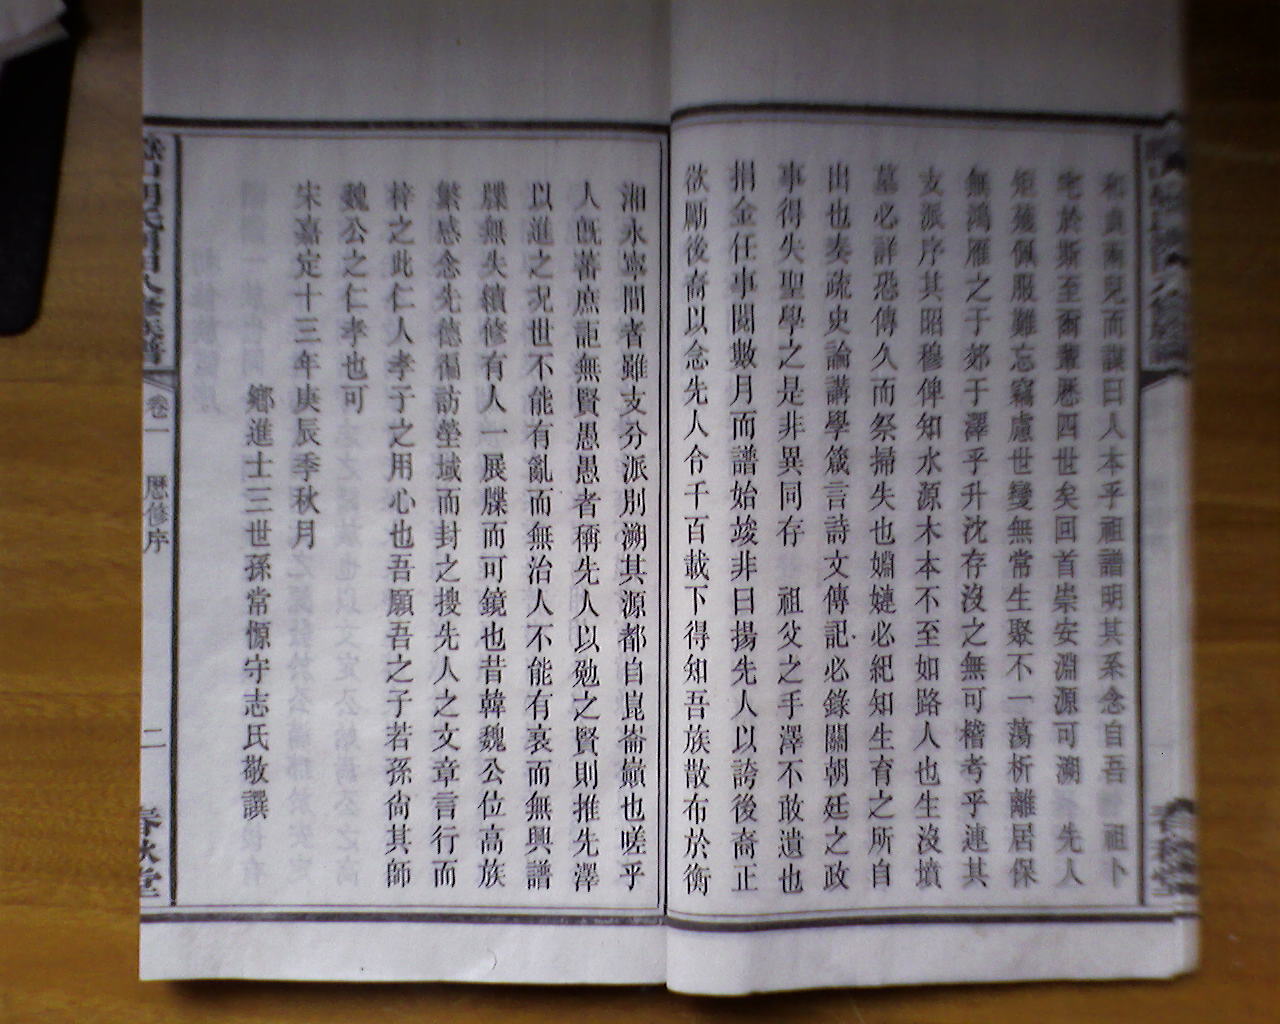 和貞兩兒而謀曰人本乎祖譜明其系念自吾 祖卜
宅於斯至爾輩歷四世矣回首崇安淵源可溯 先人
矩矱佩服難忘竊慮世變無常生聚不一蕩析離居保
無鴻雁之于郊于澤乎升沈存沒之無可稽考乎連其
支派序其昭穆俾知水源木本不至如路人也生沒墳
墓必詳恐傳久而祭掃失也婣嫿必紀知生育之所自
出也奏疏史論講學箴言詩文傳記必錄關朝廷之政
事得失聖學之是非異同存 祖父之手澤不敢遺也
捐金任事閱數月而譜始竣非曰揚先人以誇後裔正
欲勵後裔以念先人令千百載下得知吾族散布於衡
湘永寧間者雖支分派別溯其源都自崑崙巔也嗟乎
人旣蕃庶詎無賢愚愚者稱先人以勉之賢則推先澤
以進之况世不能有亂而無治人不能有衰而無興譜
牒無失續修有人一展牒而可鏡也昔韓魏公位高族
繁感念先德徧訪塋域而封之搜先人之文章言行而
梓之此仁人孝子之用心也吾願吾之子若孫尙其師
魏公之仁孝也可
宋嘉定十三年庚辰季秋月
鄉進士三世孫常愿守志氏敬譔
卷一 歷修序 二 春秋堂